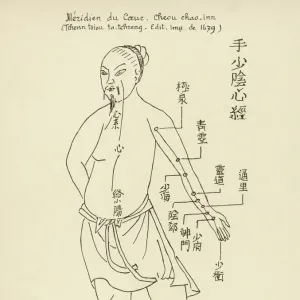 Méridien du Cœur. Cheou chao.inn
(Tchenn tsiou ta.tcheng. Edit. imp. de 1679)
手少陰心經
極泉
青靈
少海
靈道
通里
陰郄
神門
少府
少衝
心系
心
絡小腸